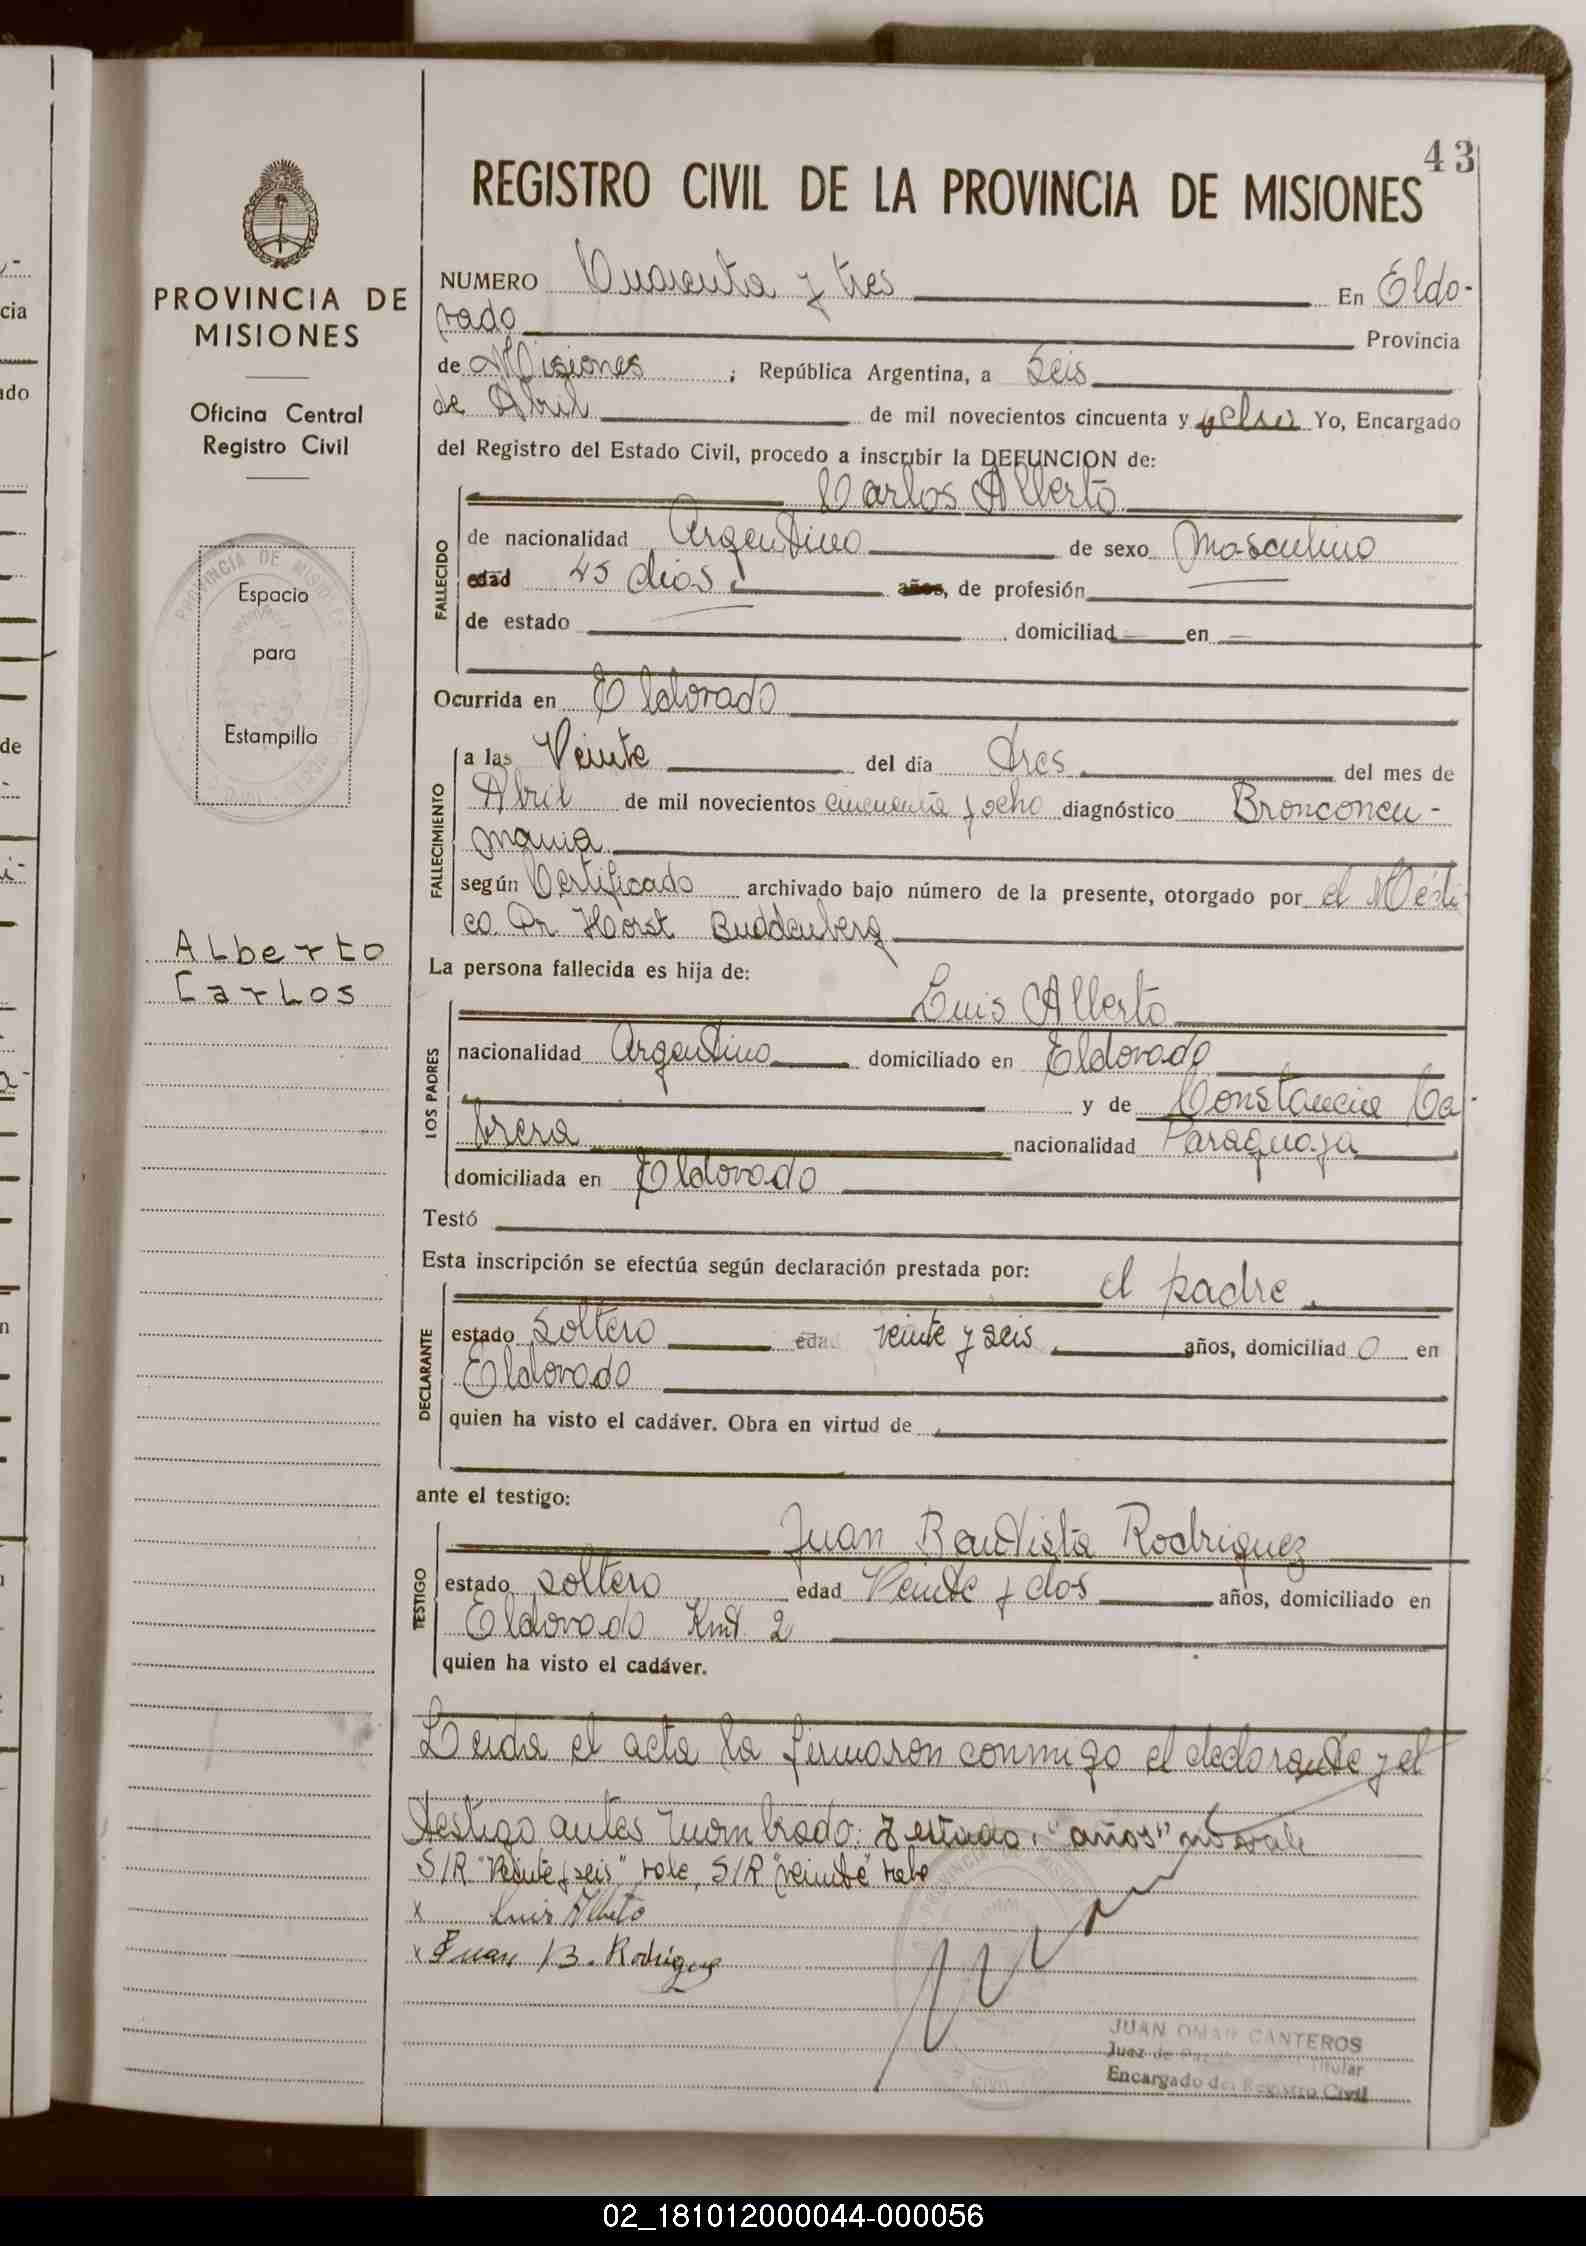 43
REGISTRO CIVIL DE LA PROVINCIA DE MISIONES
NUMERO Cuarenta y tres En Eldo-
rado Provincia
de Misiones ; República Argentina, a Seis
de Abril de mil novecientos cincuenta y ocho Yo, Encargado
del Registro del Estado Civil, procedo a inscribir la DEFUNCION de:
Carlos Alberto
FALLECIDO
de nacionalidad Argentino de sexo Masculino
edad 45 dias. años, de profesión
de estado domiciliad en
Ocurrida en Eldorado
a las Veinte del día tres del mes de
FALLECIMIENTO
Abril de mil novecientos cincuenta y ocho diagnóstico Bronconeu-
monia
según Certificado archivado bajo número de la presente, otorgado por el Médi
co Dr Horst Buddenberg
La persona fallecida es hija de:
Luis Alberto
LOS PADRES
nacionalidad Argentino domiciliado en Eldorado
y de Constancia Ca-
brera nacionalidad Paraguaya
domiciliada en Eldorado
Testó
Esta inscripción se efectúa según declaración prestada por:
el padre
DECLARANTE
estado Soltero edad veinte y seis años, domiciliad o en
Eldorado
quien ha visto el cadáver. Obra en virtud de
ante el testigo:
Juan Bautista Rodriguez
TESTIGO
estado soltero edad Veinte y dos años, domiciliado en
Eldorado Kmt. 2
quien ha visto el cadáver.
Leida el acta la firmaron conmigo el declarante y el
testigo antes nombrado: Testado: "años" no vale
S/R "Veinte y seis" vale, S/R "veinte" vale
x Luis Alberto
x Juan B. Rodriguez
JUAN OMAR CANTEROS
Juez de Paz Titular
Encargado del Registro Civil
PROVINCIA DE
MISIONES
Oficina Central
Registro Civil
PROVINCIA DE MISIONES
Espacio
para
Estampilla
ALberto
CarLos
cia
ado
de
02_181012000044-000056